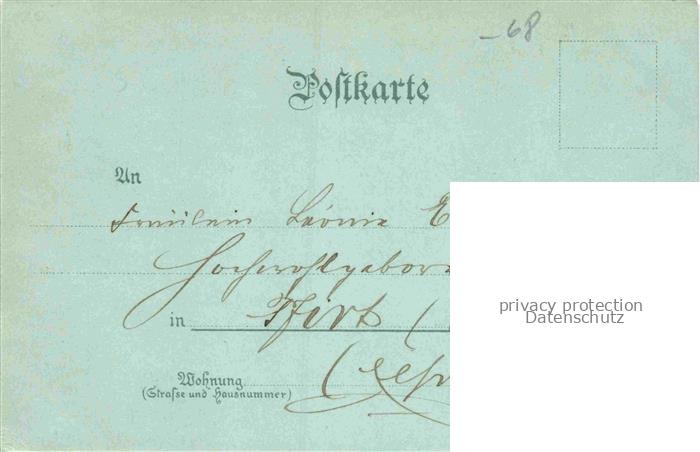 -68
Postkarte
An
Fräulein Léonie E
Hochwohlgeboren
in Pfirt (
Wohnung
(Straſse und Hausnummer)
privacy protection
Datenschutz